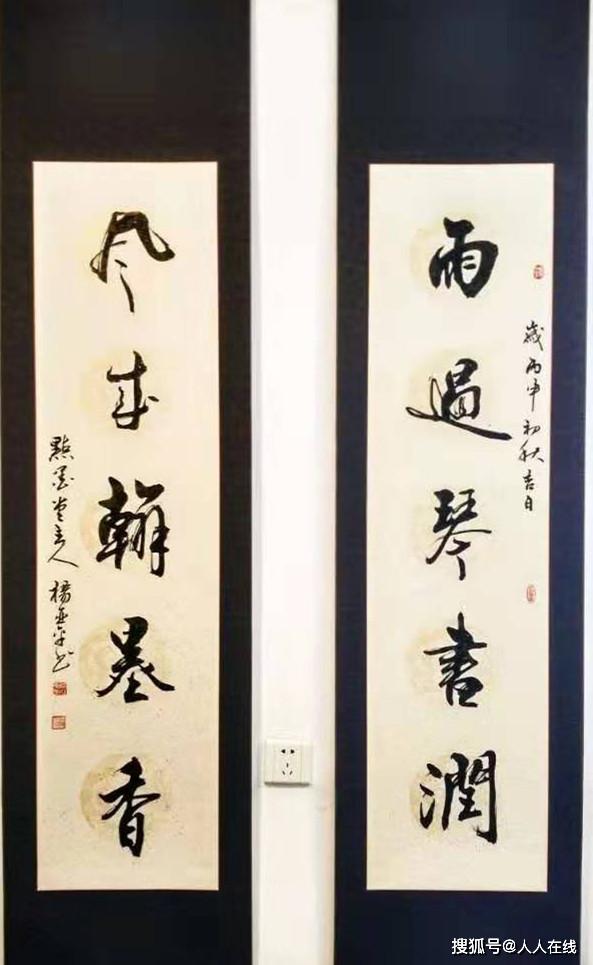 雨過琴書潤
歲丙申初秋吉日
風來翰墨香
點墨堂主人 楊亞平书
搜狐号@人人在线